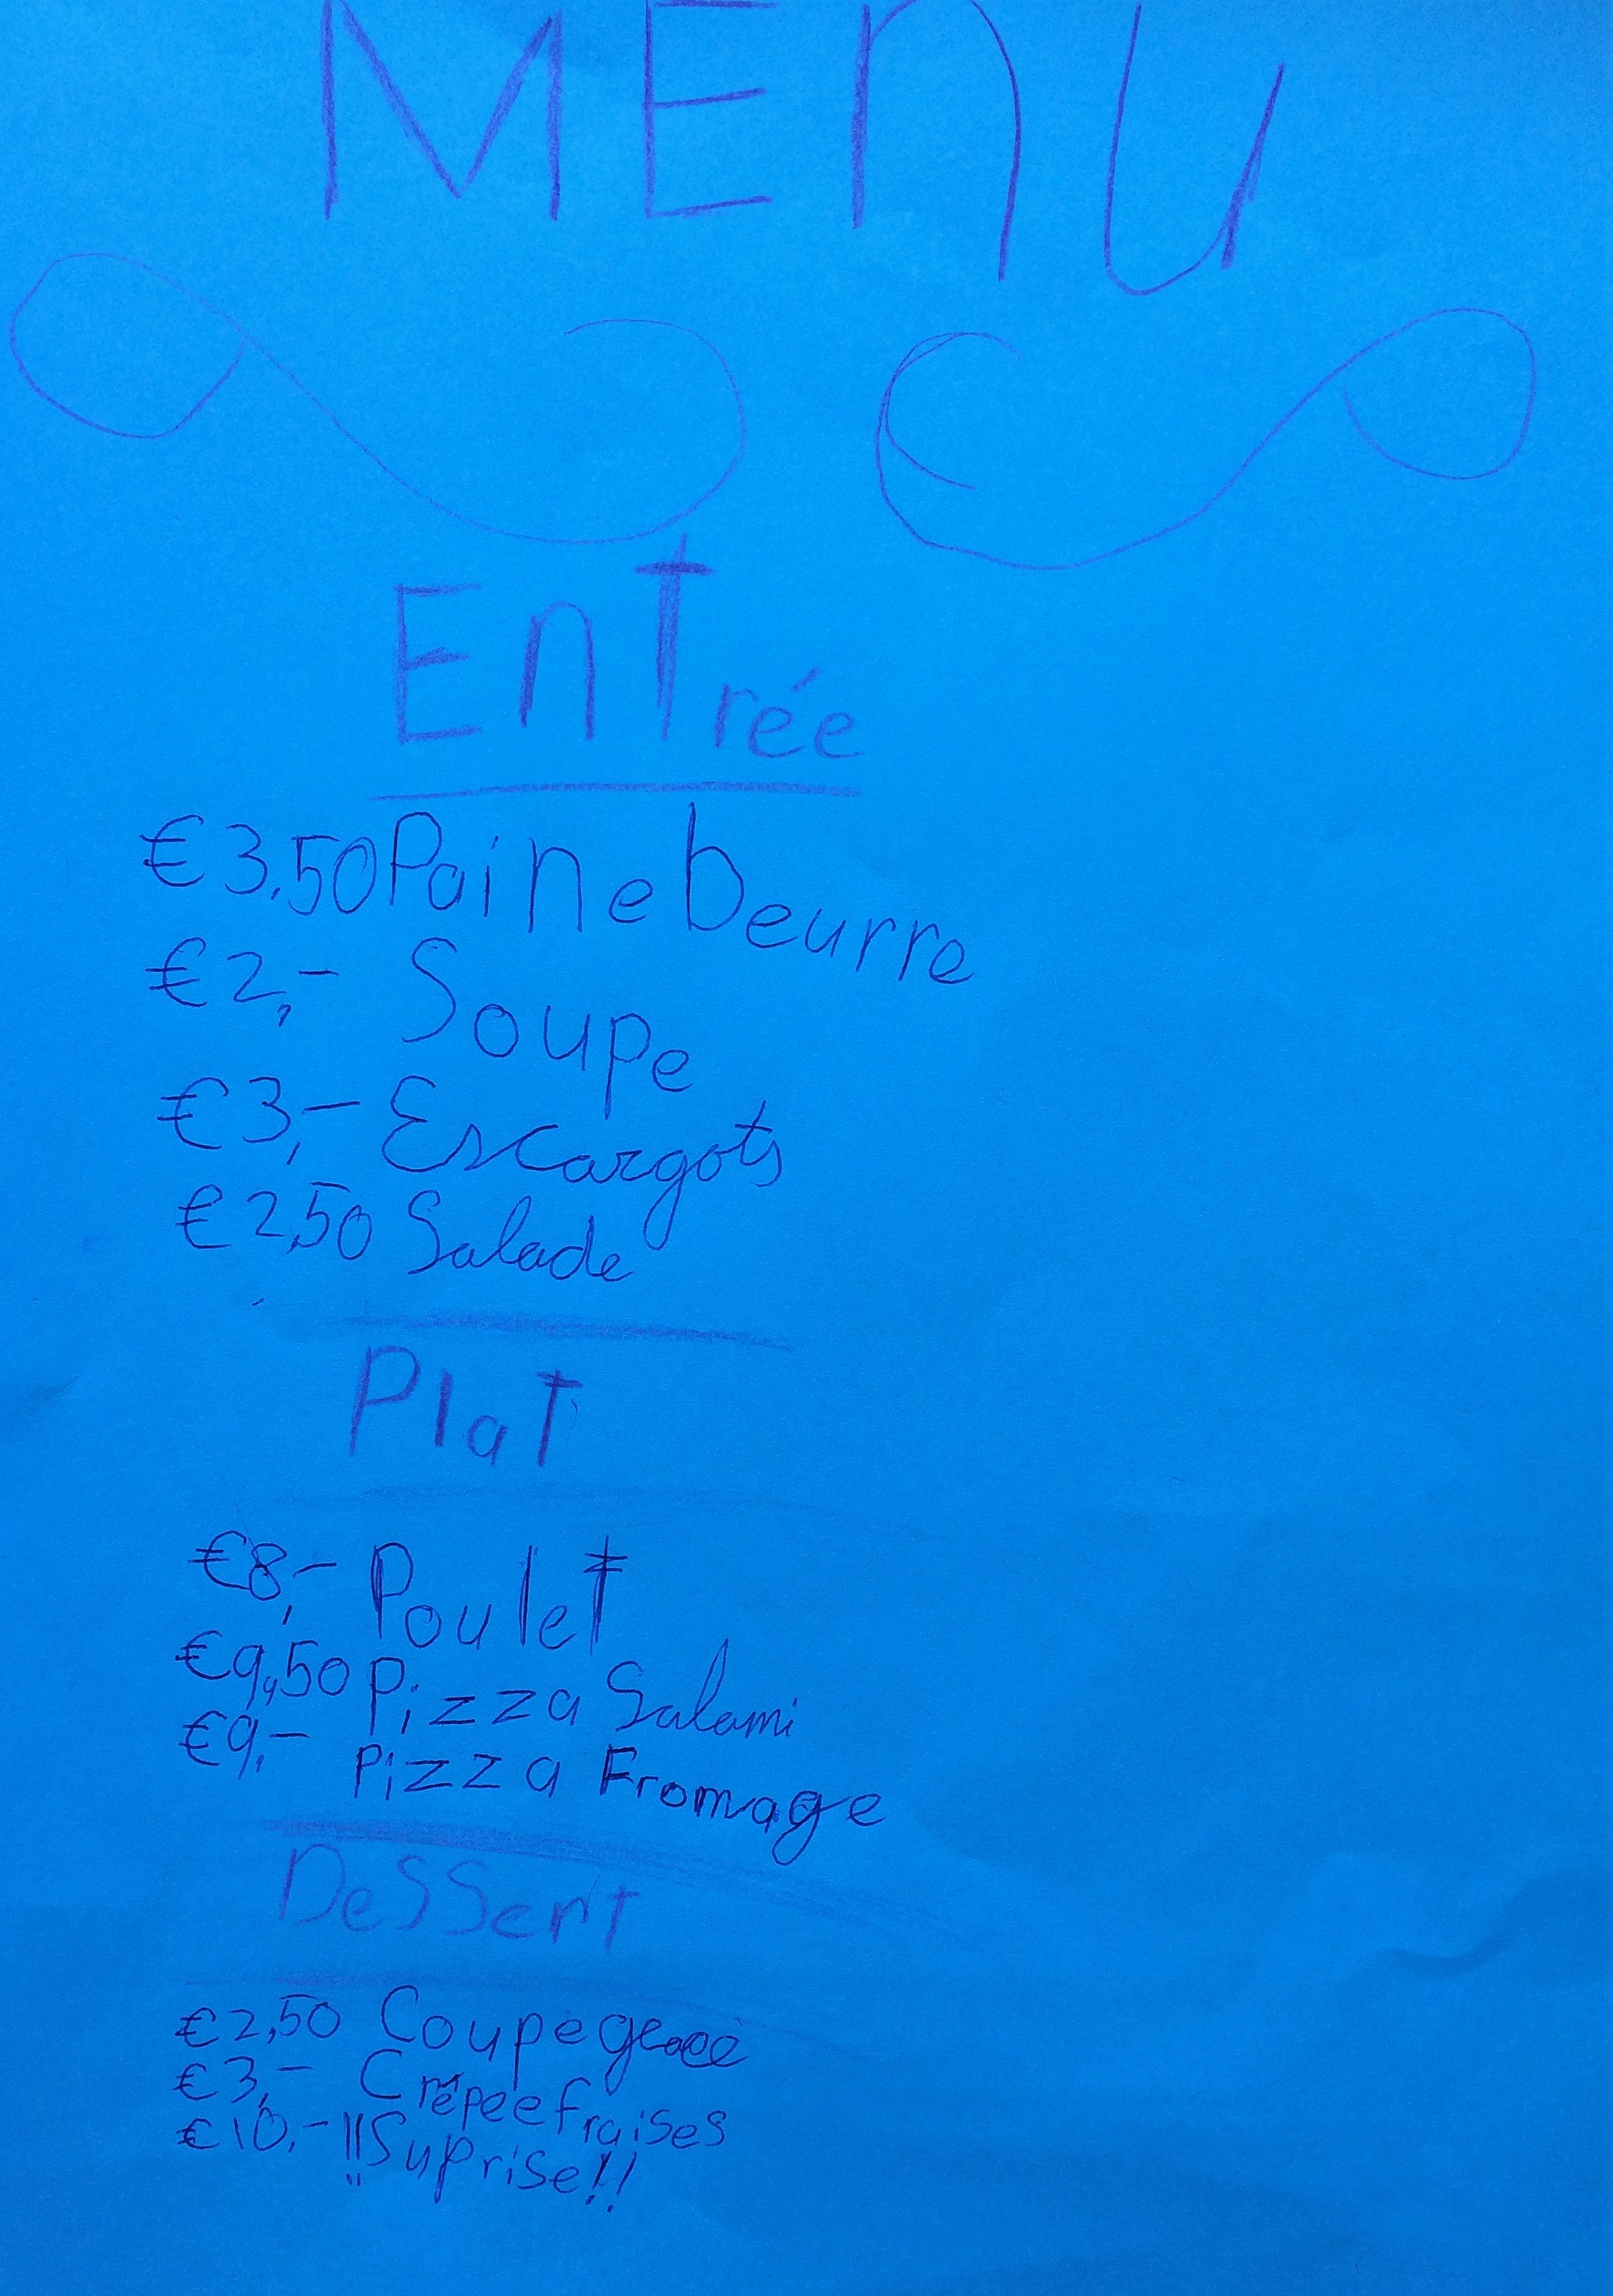 MEnU
EnTrée
€3,50 Pain e beurre
€2,- Soupe
€3,- Escargots
€2,50 Salade
Plat
€8,- Poulet
€9,50 Pizza Salami
€9,- Pizza Fromage
DeSSert
€2,50 Coupe glacé
€3,- Crêpe e fraises
€10,- !!Suprise!!